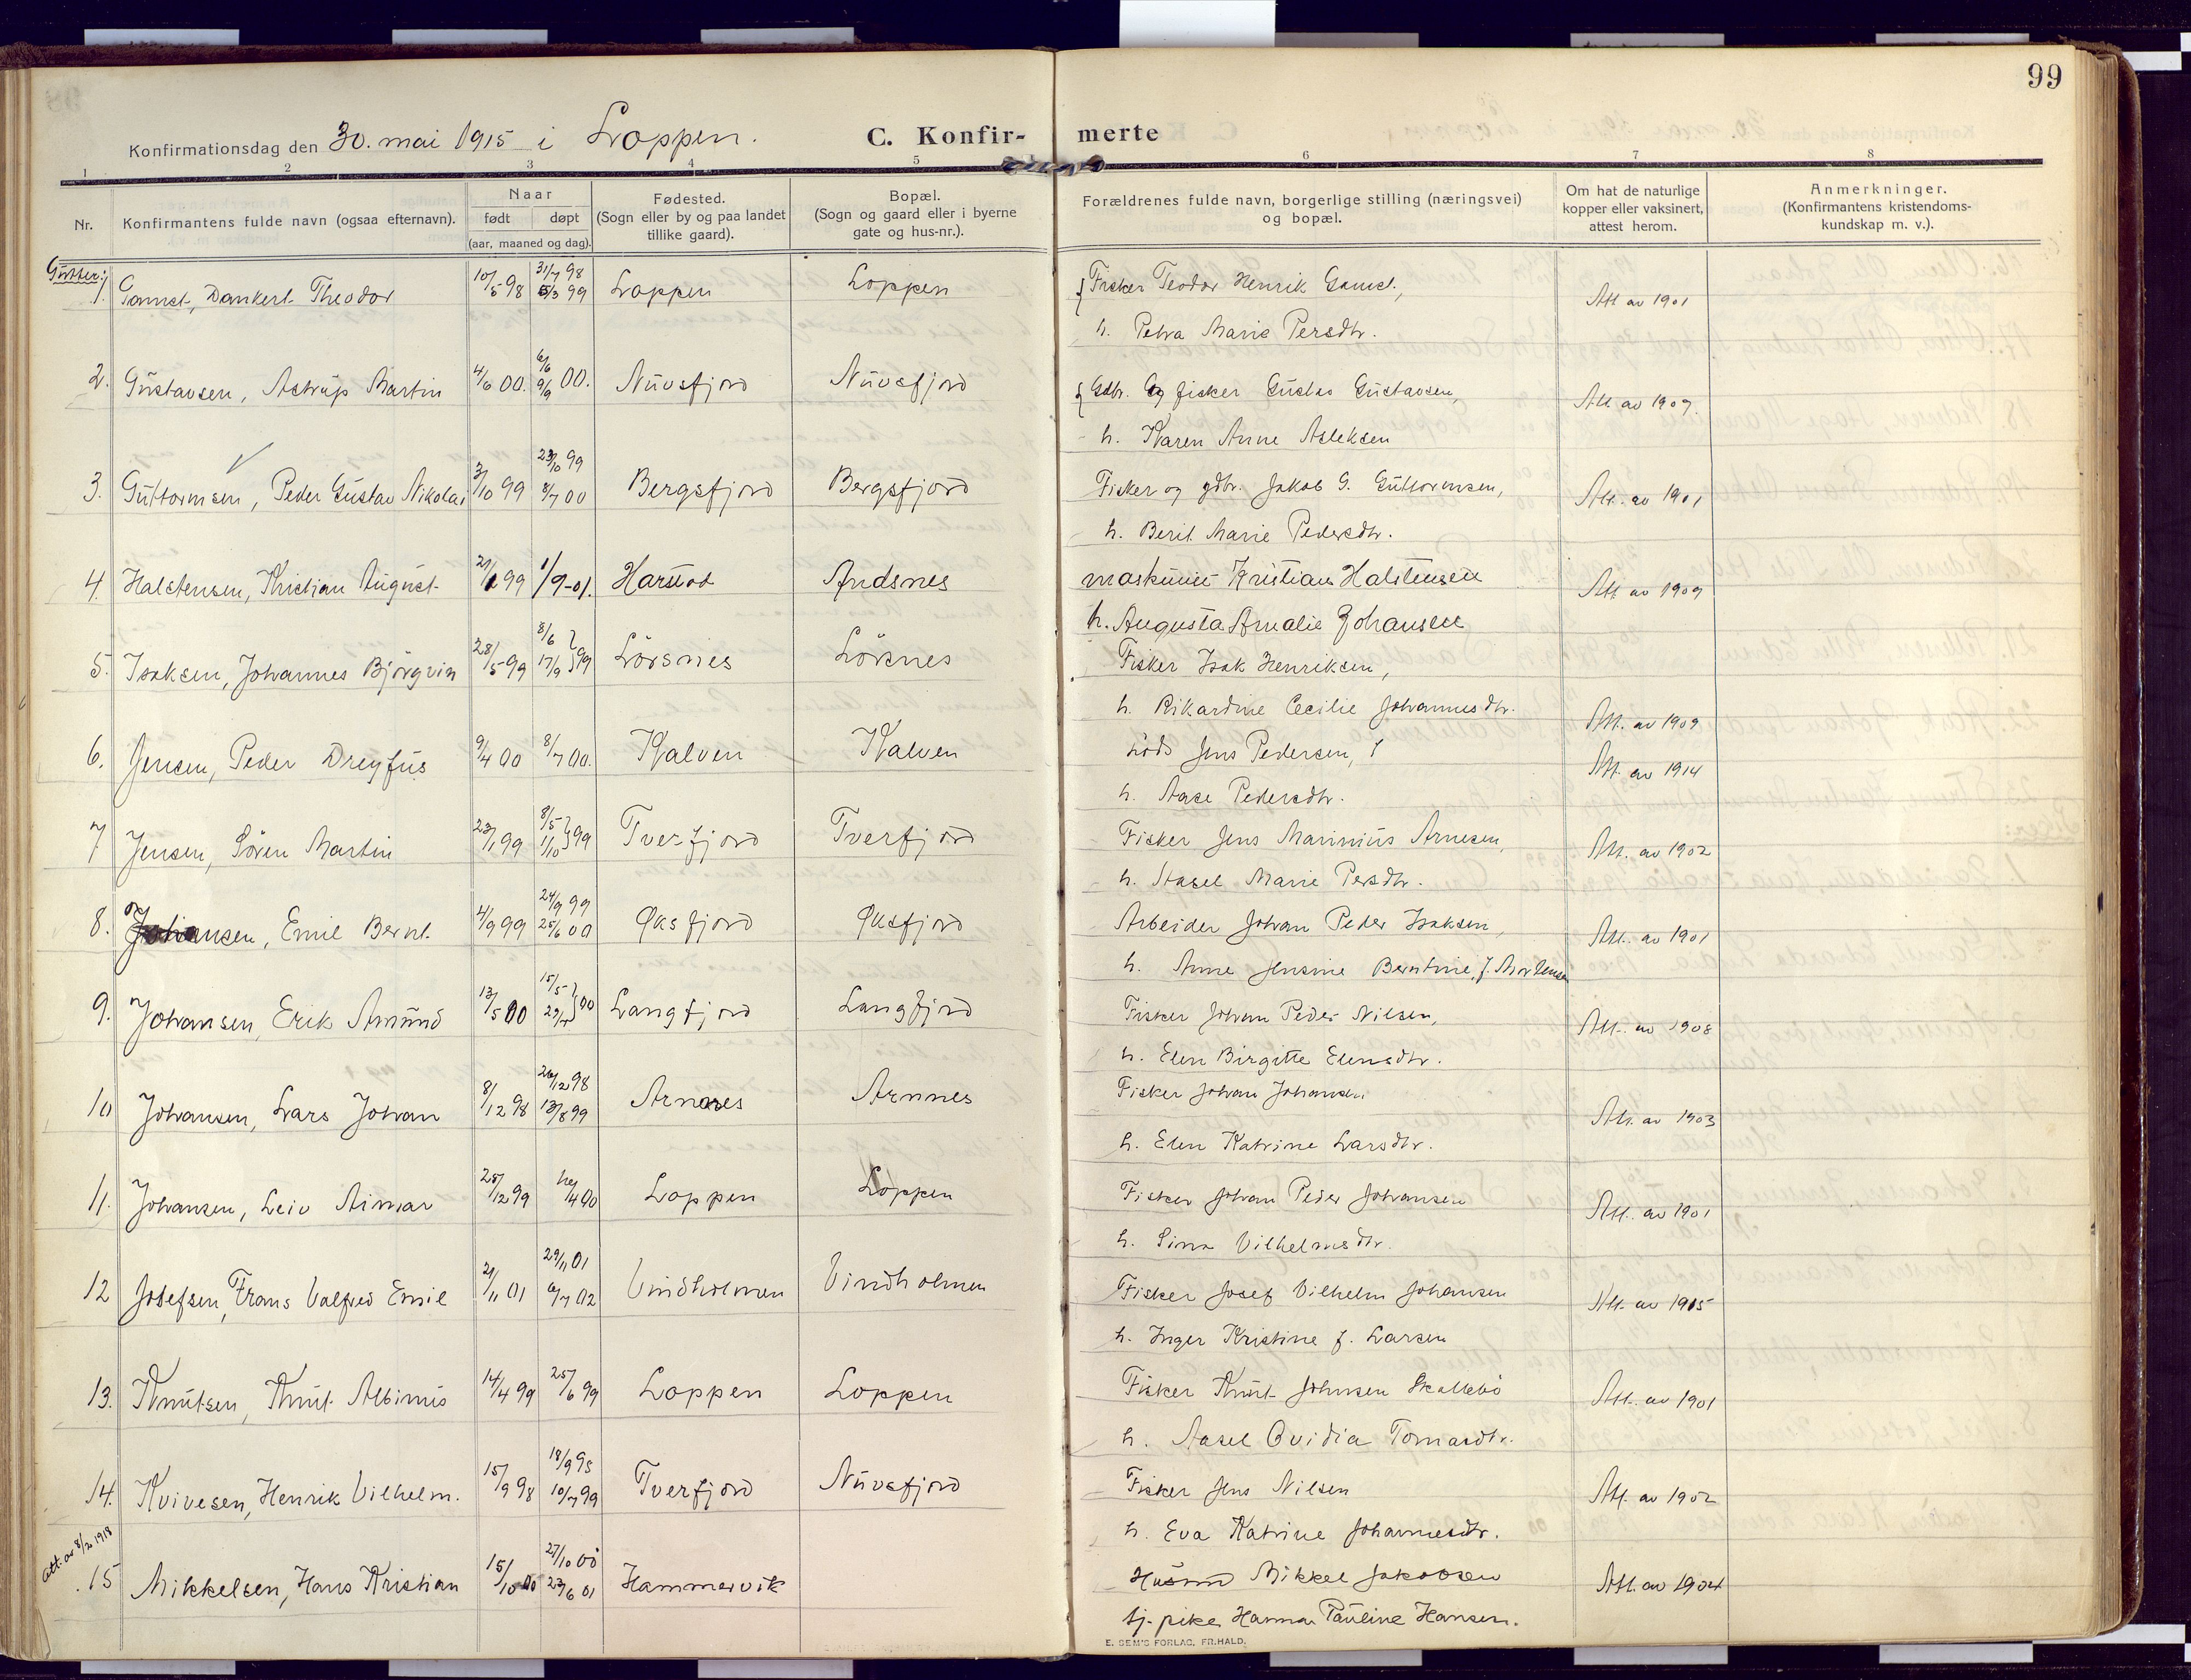 99
Konfirmationsdag den 30. mai 1915 i Loppen. C. Konfir- merte
1 2 3 4 5 6 7 8
Nr. Konfirmantens fulde navn (ogsaa efternavn). Naar født døpt (aar, maaned og dag). Fødested. (Sogn eller by og paa landet tillike gaard). Bopæl. (Sogn og gaard eller i byerne gate og hus-nr.). Forældrenes fulde navn, borgerlige stilling (næringsvei) og bopæl. Om hat de naturlige kopper eller vaksinert, attest herom. Anmerkninger. (Konfirmantens kristendoms-kundskap m. v.).
Gutter:
1. Gamst, Dankert Theodor 10/5 98 31/7 98 5/3 99 Loppen Loppen Fisker Teodor Henrik Gamst, Att av 1901
h. Petra Marie Persdtr.
2. Gustavsen, Astrup Martin 4/6 00. 6/6 9/9 00. Nuvsfjord Nuvsfjord Gdbr. og fisker Gustav Gustavsen, Att av 1907.
h. Karen Anne Asleksen
3. Guttormsen, Peder Gustav Nikolai 3/10 99 23/10 99 8/7 00 Bergsfjord Bergsfjord Fisker og gdbr. Jakob G. Guttormsen, Att. av 1901
h. Berit Marie Pedersdtr.
4. Halstensen, Kristian August 99 1/9-01. Andsnes Kristian Halstensen Att av 1909
h. Augusta Amalie Johansen
5. Isaksen, Johannes Bjørgvin 28/5 99 8/6 17/9 99 Fisker Isak Henriksen,
h. Rikardine Cecilie Johannesdtr. Att. av 1909
6. Jensen, Peder Dreyfus 9/4 00 8/7 00. Kalven Kalven Lods Jens Pedersen, Att. av 1914
h. Aase Pedersdtr.
7 Jensen, Søren Martin 23/1 99 8/5 1/10 99 Tverfjord Tverfjord Fisker Jens Marinius Arnesen, Att. av 1902
h. Aasel Marie Persdtr.
8. Johansen, Emil Bernt. 4/9 99 24/9 99 25/6 00 Øksfjord Øksfjord Arbeider Johan Peder Isaksen, Att. av 1901
h. Anne Jensine Berntine, f. Mortensen
9. Johansen, Erik Amund 13/5 00 15/5 29/7 00 Langfjord Langfjord Fisker Johan Peder Nilsen, Att. av 1908
h. Elen Birgitte Elensdtr.
10 Johansen, Lars Johan 8/12 98 26/12 98 13/8 99 Arnnes Arnnes Fisker Johan Johansen Att. av 1903
h. Elen Katrine Larsdtr.
11. Johansen, Leiv Aimar 25/12 99 4 00 Loppen Loppen Fisker Johan Peder Johansen Att. av 1901
h. Sina Vilhelmsdtr.
12 Josefsen, Frans Valfred Emil 2/11 01 29/11 01 6/7 02 Vindholmen Vindholmen Fisker Josef Vilhelm Johansen Att. av 1915
h. Inger Kristine f. Larsen
13. Knutsen, Knut Albinus 14/4 99 25/6 99 Loppen Loppen Fisker Knut Johnsen Skallebø Att. av 1901
h. Aasel Ovidia Tomasdtr.
14. Kvivesen, Henrik Vilhelm. 15/9 98 18/9 98 10/7 99 Tverfjord Nuvsfjord Fisker Jens Nilsen Att. av 1902
h. Eva Katrine Johannesdtr.
att. av 8/2 1918
15 Mikkelsen, Hans Kristian 15/10 00 27/10 00 23/6 01 Hammervik Husmd Mikkel Jakobsen Att. av 1904
tj. pike Hanna Pauline Hansen.
E. SEM'S FORLAG, FR.HALD.